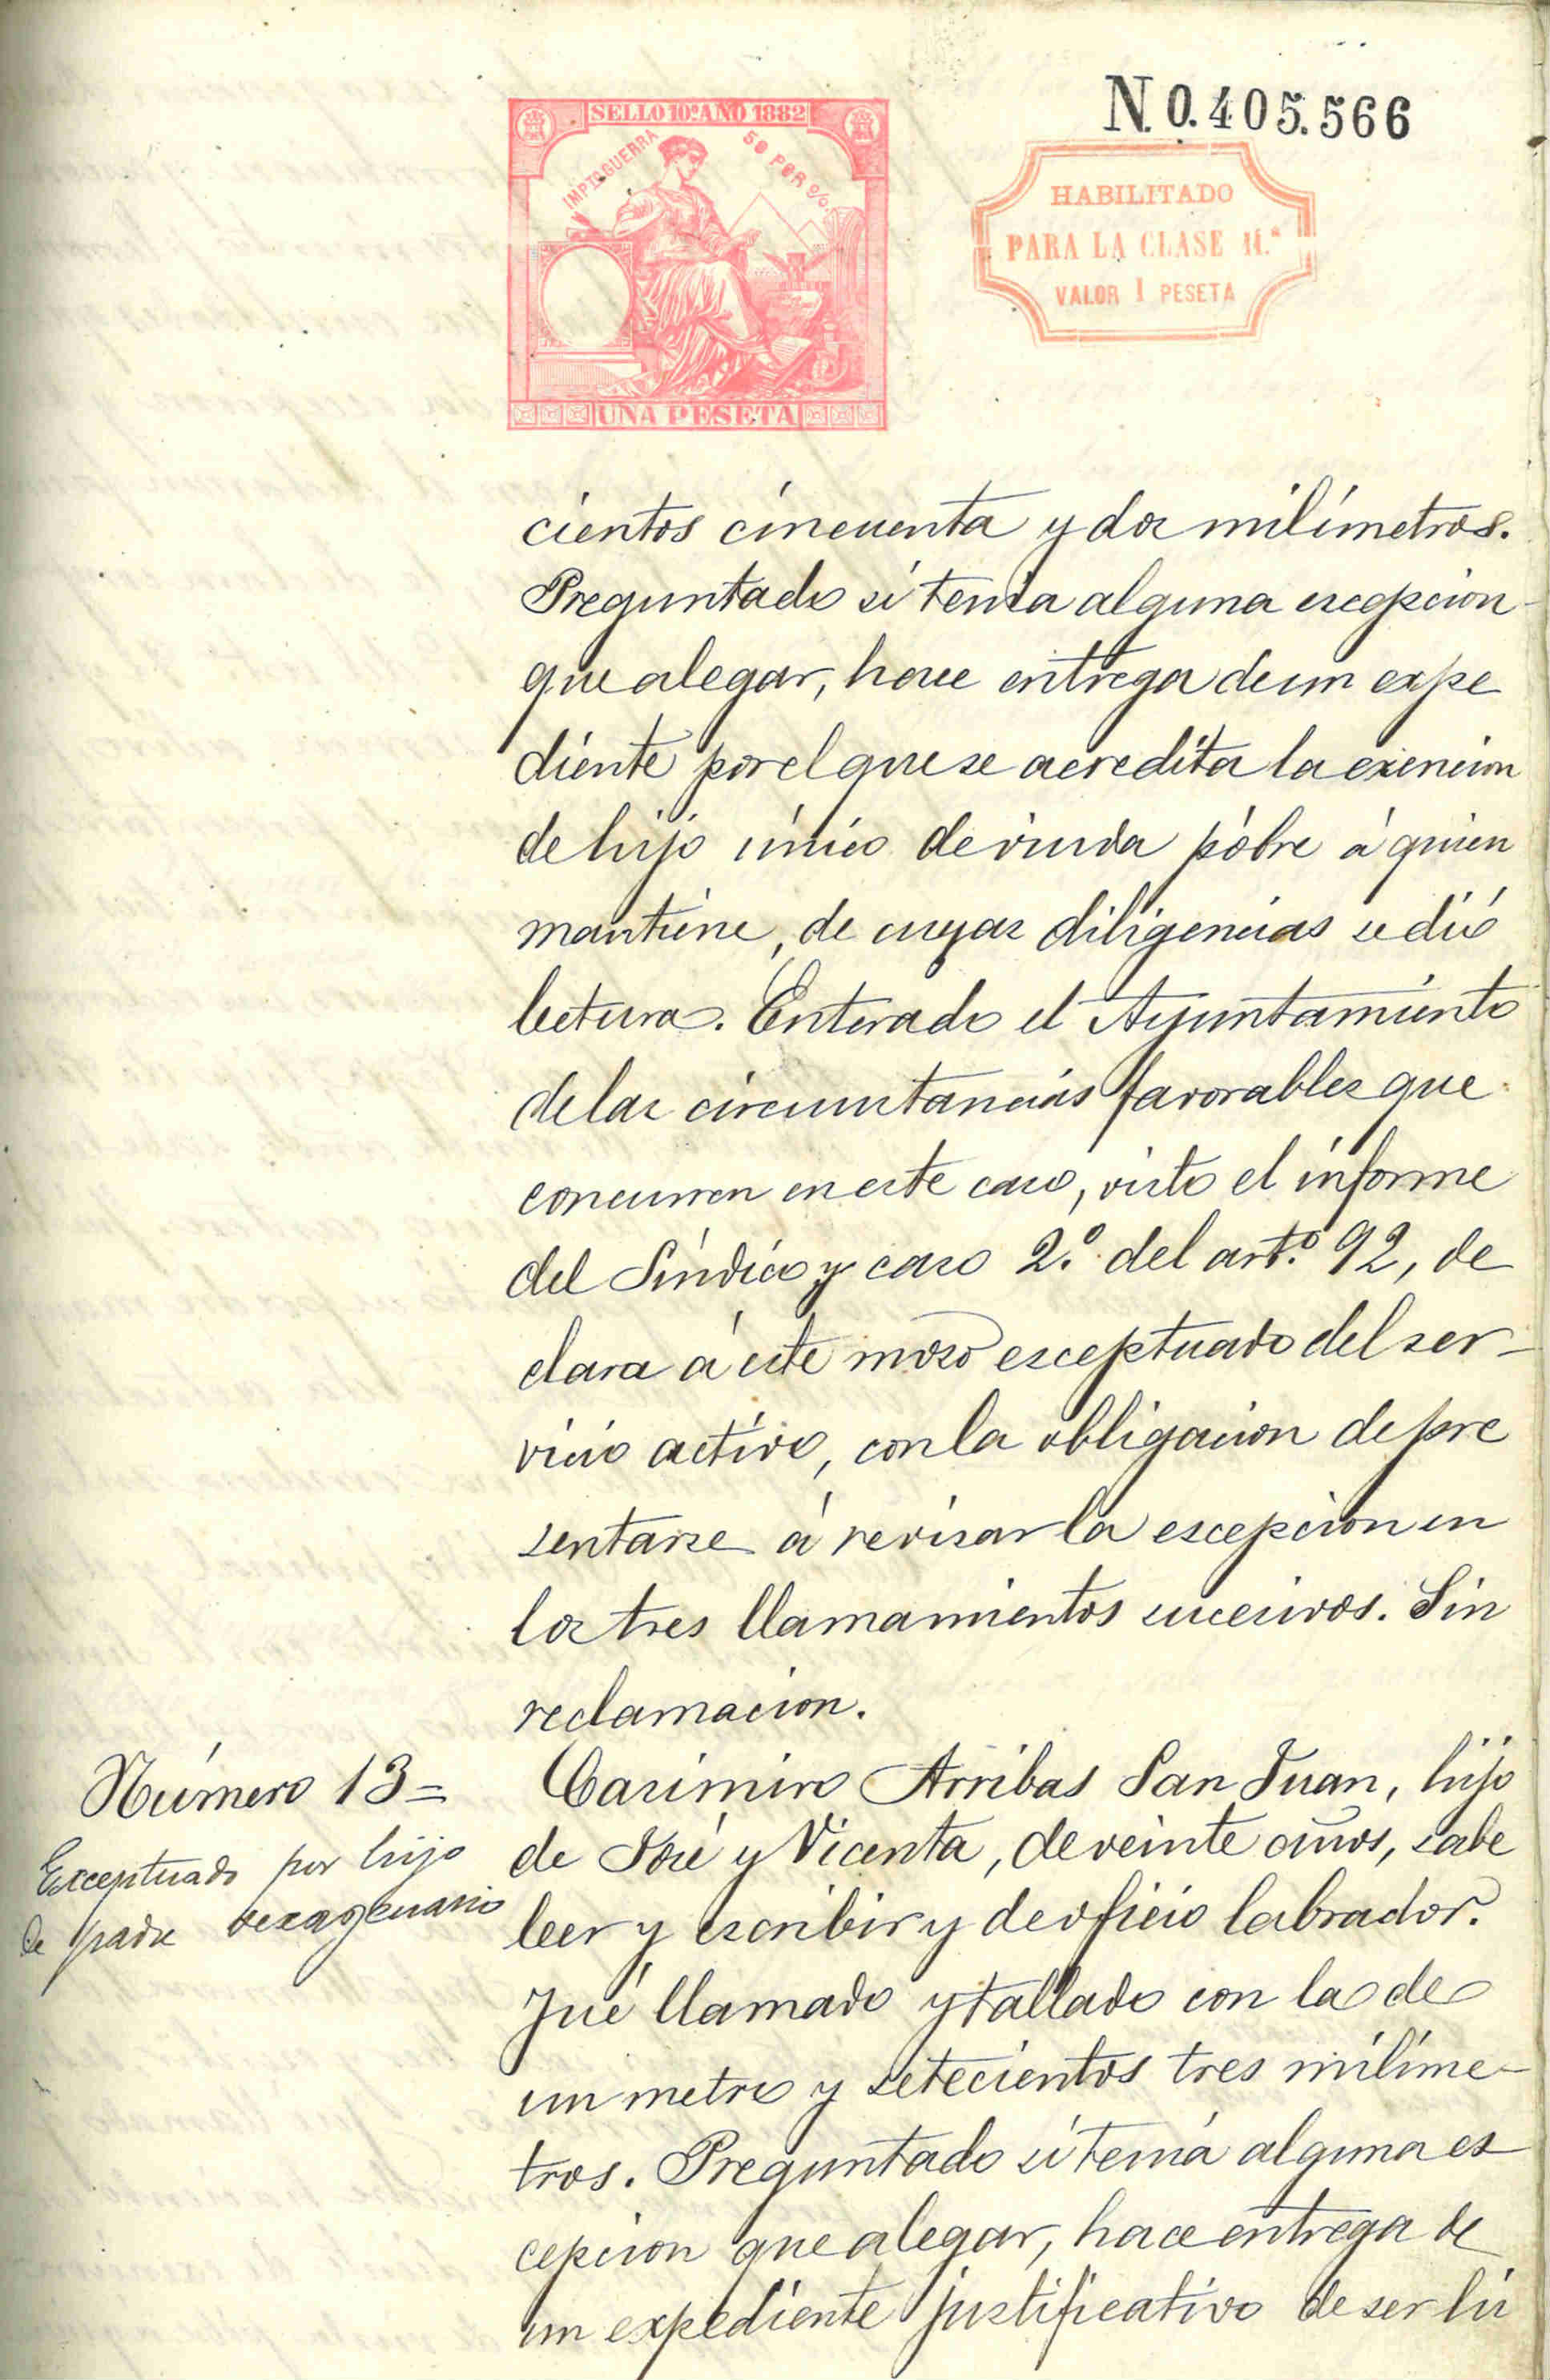 N.0.405.566
SELLO 10º AÑO 1882
IMPTO GUERRA 50 POR %
UNA PESETA
HABILITADO
PARA LA CLASE 11.ª
VALOR 1 PESETA
cientos cincuenta y dos milímetros.
Preguntado si tenia alguna escepcion
que alegar, hace entrega de un expe
diente por el que se acredita la exencion
de hijo único de viuda pobre á quien
mantiene, de cuyas diligencias se dió
lectura. Enterado el Ayuntamiento
de las circunstancias favorables que
concurren en este caso, visto el informe
del Síndico y caso 2.º del art.º 92, de
clara á este mozo esceptuado del ser-
vicio activo, con la obligacion de pre
sentarse á revisar la escepcion en
los tres llamamientos sucesivos. Sin
reclamacion.
Número 13=
Exceptuado por hijo
de padre sexagenario
Casimiro Arribas San Juan, hijo
de José y Vicenta, de veinte años, sabe
leer y escribir y de oficio labrador.
Fué llamado y tallado con la de
un metro y setecientos tres milíme-
tros. Preguntado si tenia alguna es
cepcion que alegar, hace entrega de
un expediente justificativo de ser hi